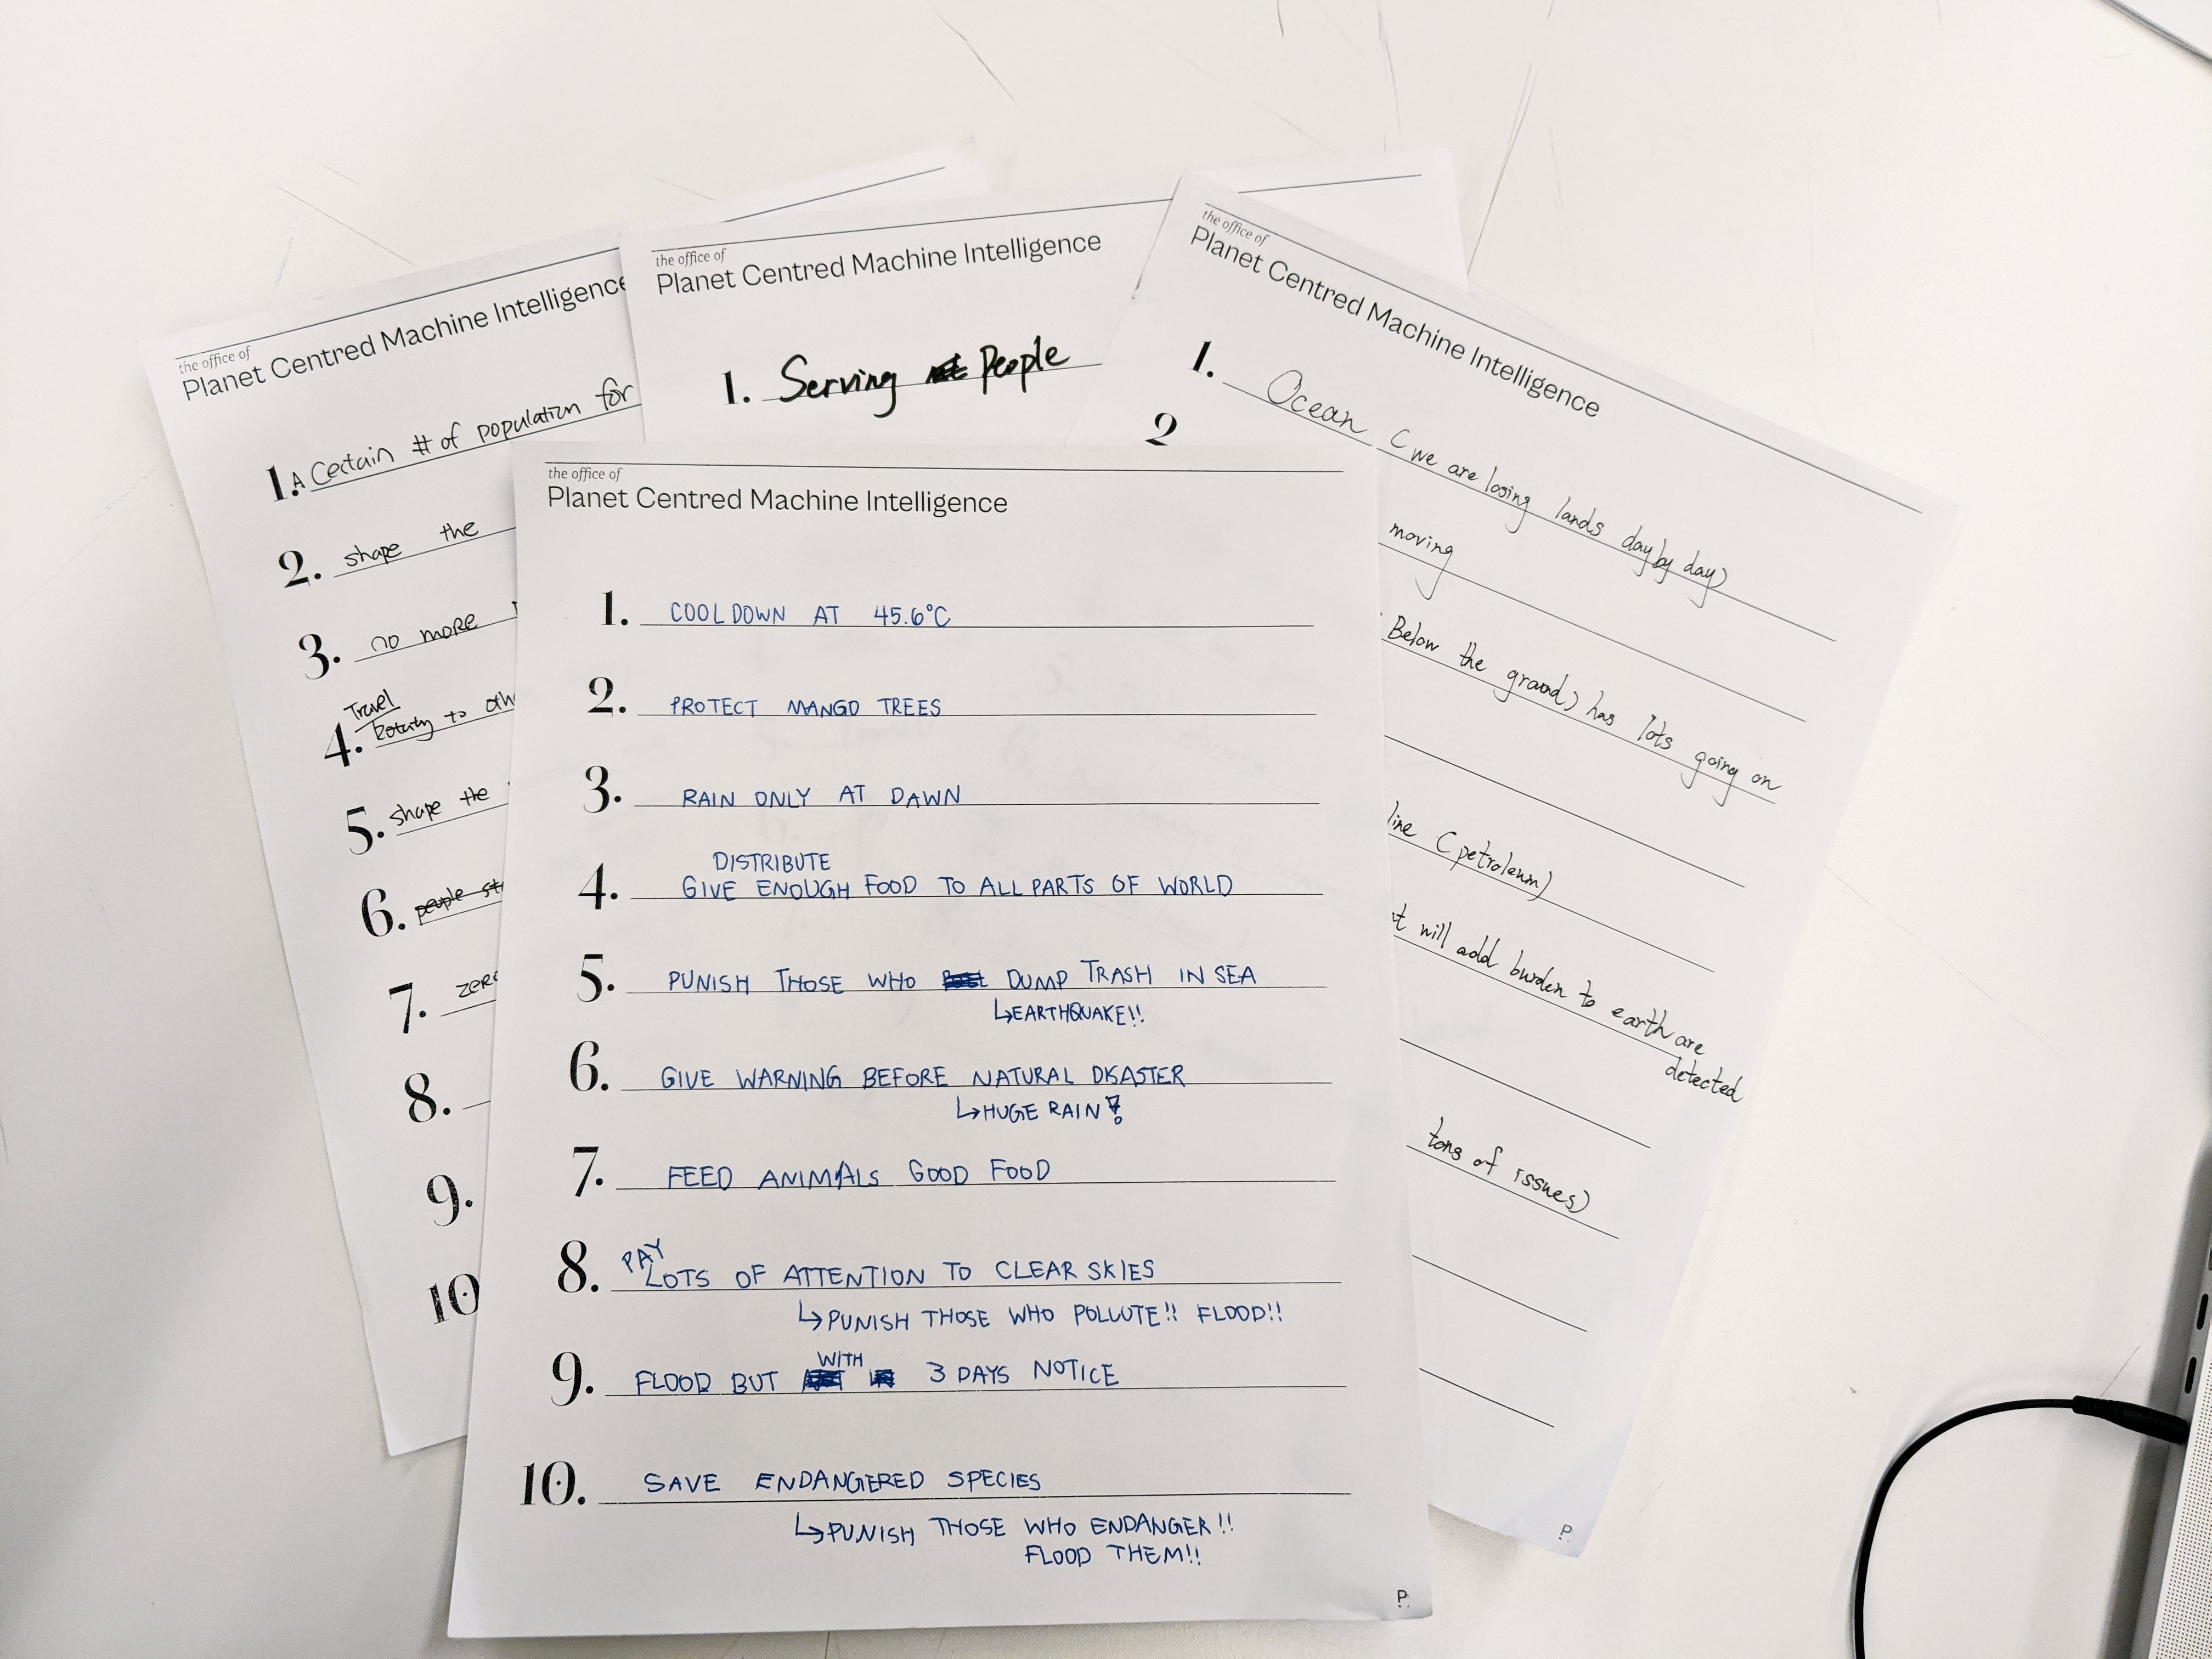 the office of
Planet Centred Machine Intelligence
1. A Certain # of population for
2. shape the
3. no more
Travel
4. to oth
5. shape the
6. people st
7. zero
8.
9.
10
the office of
Planet Centred Machine Intelligence
1. Serving People
the office of
Planet Centred Machine Intelligence
1. Ocean (we are losing lands day by day)
2
moving
Below the ground) has lots going on
line (petroleum)
will add burden to earth are
detected
tons of issues)
P.
the office of
Planet Centred Machine Intelligence
1. COOL DOWN AT 45.6°C
2. PROTECT MANGO TREES
3. RAIN ONLY AT DAWN
DISTRIBUTE
4. GIVE ENOUGH FOOD TO ALL PARTS OF WORLD
5. PUNISH THOSE WHO DUMP TRASH IN SEA
↳EARTHQUAKE!!
6. GIVE WARNING BEFORE NATURAL DISASTER
↳HUGE RAIN!
7. FEED ANIMALS GOOD FOOD
PAY
8. LOTS OF ATTENTION TO CLEAR SKIES
↳PUNISH THOSE WHO POLLUTE!! FLOOD!!
WITH
9. FLOOD BUT 3 DAYS NOTICE
10. SAVE ENDANGERED SPECIES
↳PUNISH THOSE WHO ENDANGER!!
FLOOD THEM!!
P.